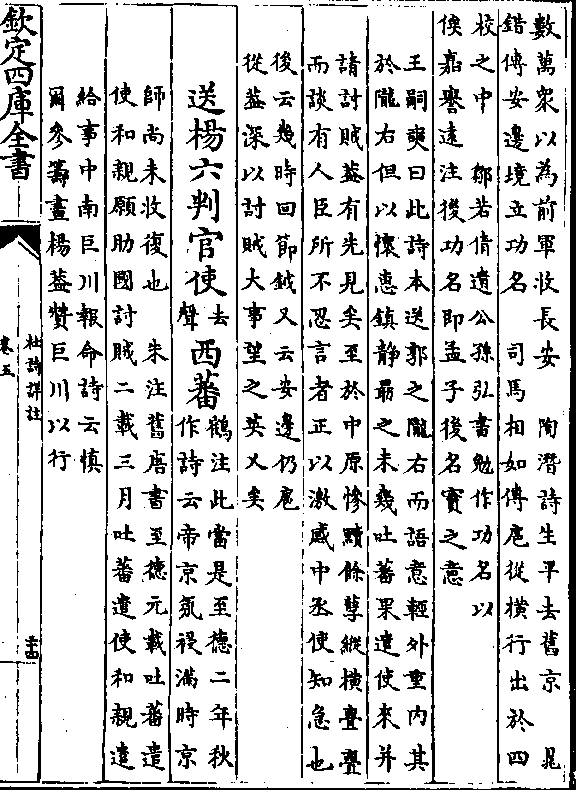 數萬衆以為前軍收長安　陶潛詩生平去舊京　晁
錯傳安邊境立功名　司馬相如傳扈從橫行出於四
校之中　鄒若倩遺公孫弘書勉作功名以
俟嘉譽遠注後功名即孟子後名實之意
王嗣奭曰此詩本送郭之隴右而語意輕外重内其
於隴右但以懷惠鎮靜朂之未幾吐蕃果遣使來并
請討賊葢有先見矣至於中原慘黷餘孽縱橫亹亹
而談有人臣所不忍言者正以激感中丞使知急也
後云幾時回節鉞又云安邊仍扈
從葢深以討賊大事望之英乂矣
送楊六判官使去聲西蕃鶴注此當是至德二年秋作詩云帝京氛祲滿時京
師尚未收復也　朱注舊唐書至德元載吐蕃遣
使和親願助國討賊二載三月吐蕃遣使和親遣
給事中南巨川報命詩云慎
爾參籌畫楊葢贊巨川以行
欽定四庫全書
杜詩詳註
卷五
二十四